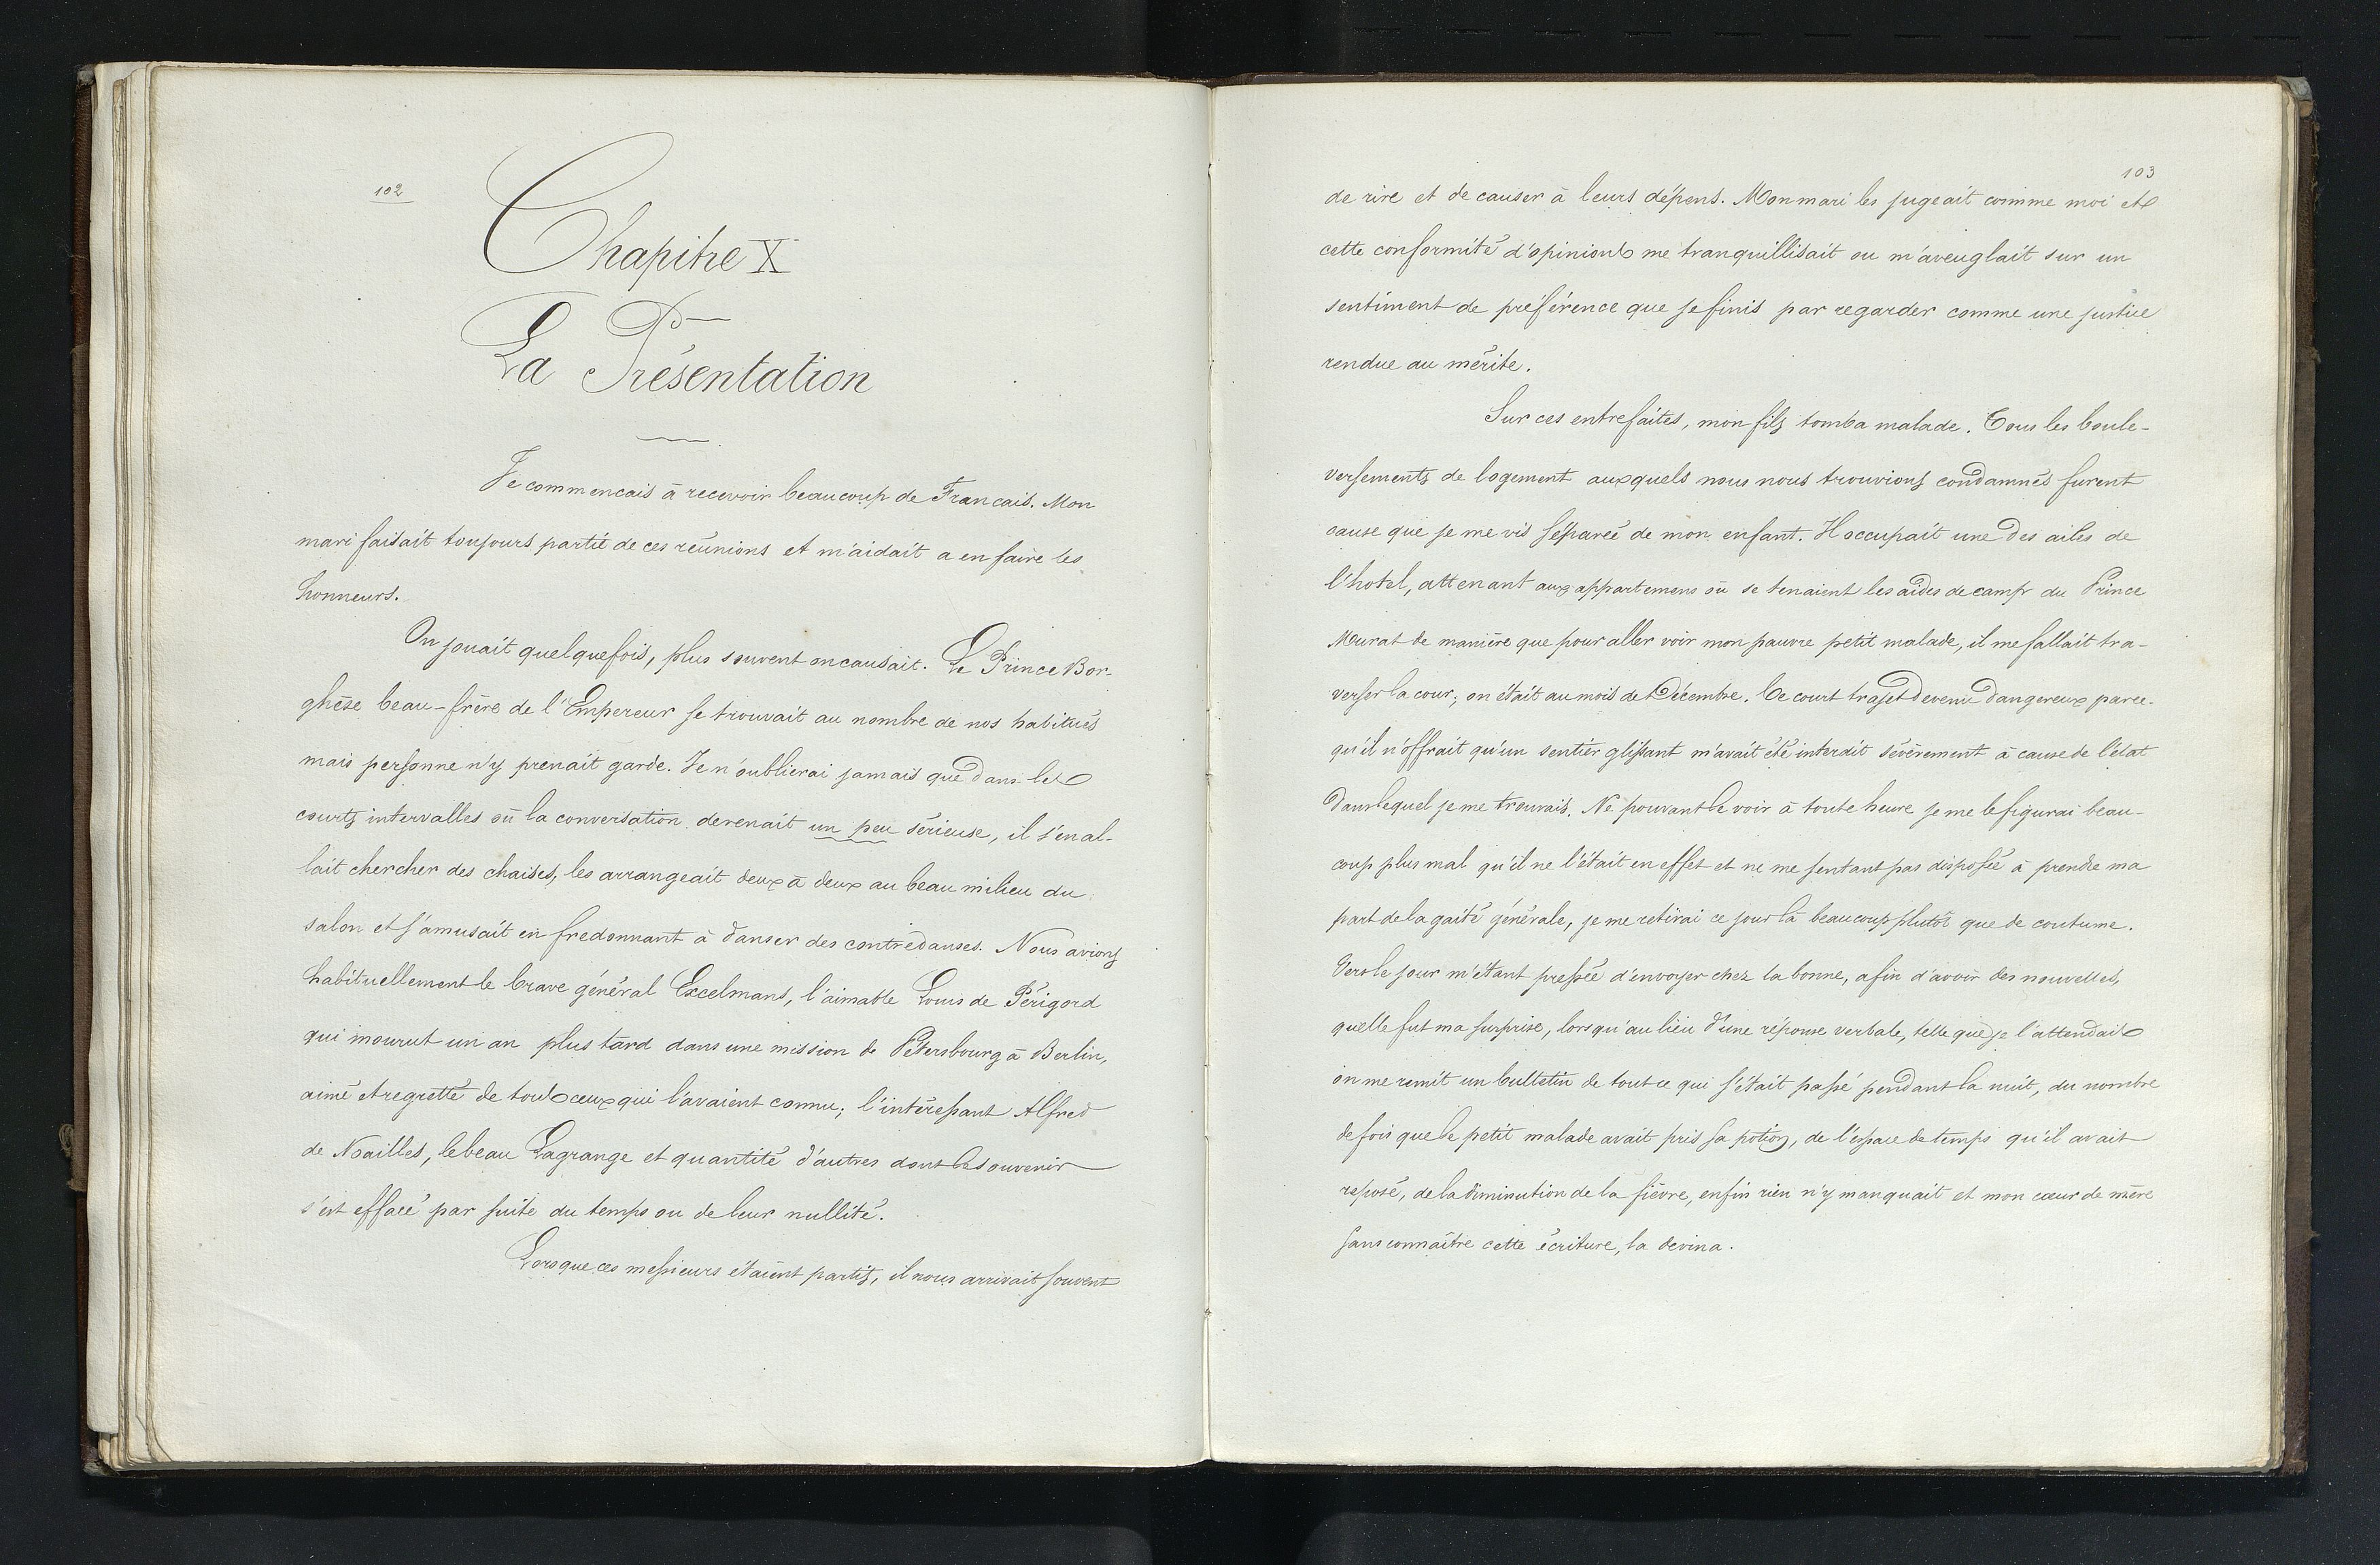 102
Chapitre X
La Présentation
Je commencais à recevoir beaucoup de Francais. Mon
mari faisait toujours partie de ces réunions et m'aidait a en faire les
honneurs.
On jouait quelquefois, plus souvent on causait. Le Prince Bor-
ghèse beau-frère de l'Empereur se trouvait au nombre de nos habitués
mais personne n'y prenait garde. Je n'oublierai jamais que dans les
courts intervalles où la conversation devenait un peu sérieuse, il s'en al-
lait chercher des chaises, les arrangeait deux à deux au beau milieu du
salon et s'amusait en fredonnant à danser des contredanses. Nous avions
habituellement le brave général Excelmans, l'aimable Louis de Périgord
qui mourut un an plus tard dans une mission de Pétersbourg à Berlin,
aimé et regretté de tous ceux qui l'avaient connu; l'intéressant Alfred
de Noailles, le beau Lagrange et quantité d'autres dont le souvenir
s'est effacé par suite du temps ou de leur nullité.
Lorsque ces messieurs étaient partis, il nous arrivait souvent
103
de rire et de causer à leurs dépens. Mon mari les jugeait comme moi et
cette conformité d'opinions me tranquillisait ou m'aveuglait sur un
sentiment de préférence que je finis par regarder comme une justice
rendue au mérite.
Sur ces entrefaites, mon fils tomba malade. Tous les boule-
versements de logement auxquels nous nous trouvions condamnés furent
cause que je me vis séparée de mon enfant. Il occupait une des ailes de
l'hotel, attenant aux appartemens où se tenaient les aides de camp du Prince
Murat de manière que pour aller voir mon pauvre petit malade, il me fallait tra-
verser la cour; on était au mois de Décembre. Ce court trajet devenu dangereux parce-
qu'il n'offrait qu'un sentier glissant m'avait été interdit sévèrement à cause de l'état
dans lequel je me trouvais. Ne pouvant le voir à toute heure je me le figurai beau-
coup plus mal qu'il ne l'était en effet et ne me sentant pas disposée à prendre ma
part de la gaité générale, je me retirai ce jour là beaucoup plutôt que de coutume.
Vers le jour m'étant pressée d'envoyer chez la bonne, afin d'avoir des nouvelles,
quelle fut ma surprise, lorsqu'au lieu d'une réponse verbale, telle que je l'attendais
on me remit un bulletin de tout ce qui s'était passé pendant la nuit, du nombre
de fois que le petit malade avait pris sa potion, de l'espace de temps qu'il avait
reposé, de la diminution de la fièvre, enfin rien n'y manquait et mon cœur de mère
sans connaître cette écriture, la devina.